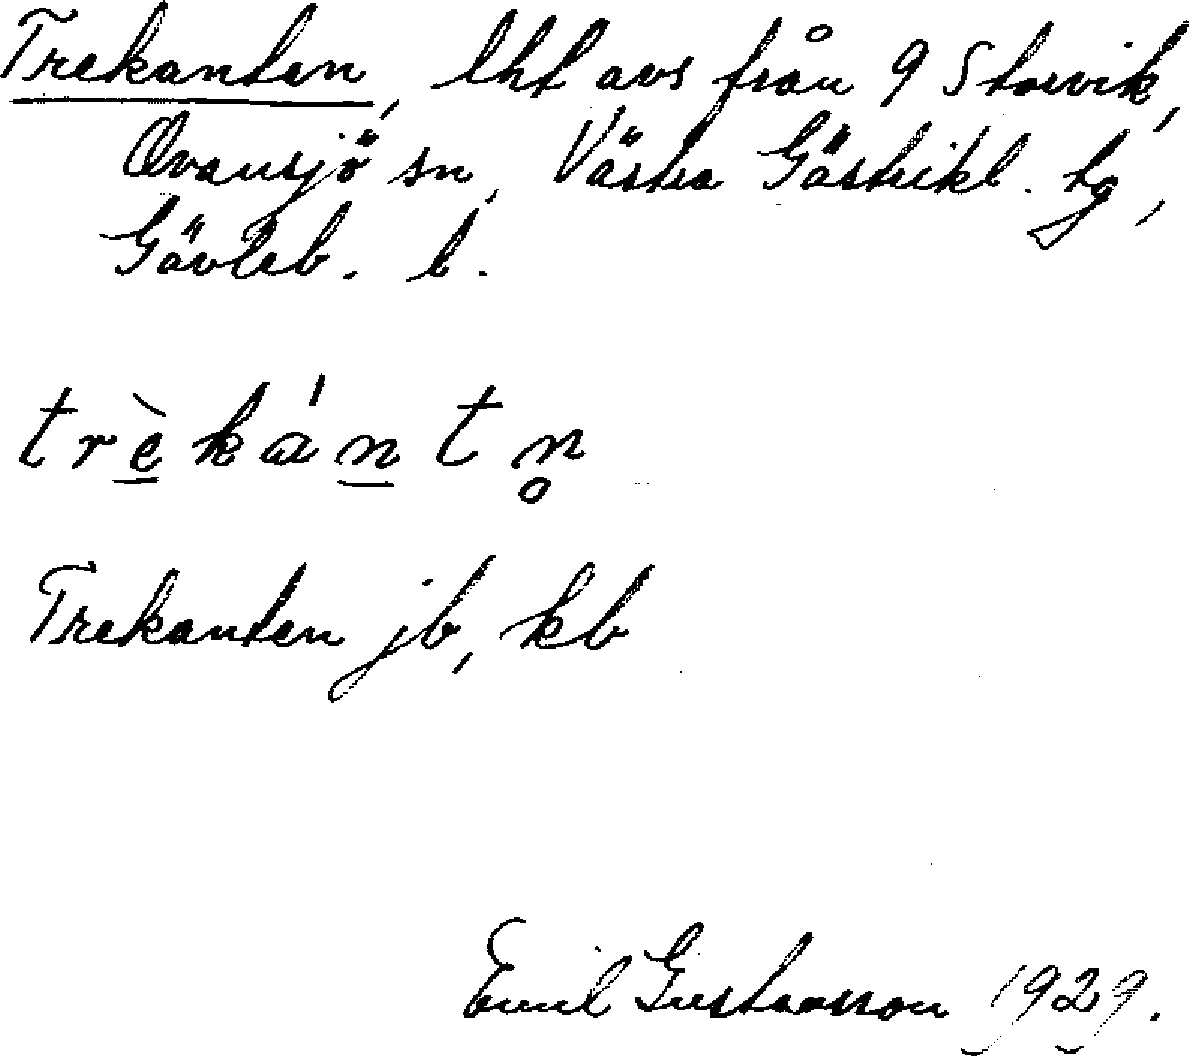 Trekanten, lht avs från 9 Storvik,
Ovansjö sn, Västra Gästrikl. tg,
Gävleb. l.
trè̲kán̲tn̥
Trekanten jb, kb
Emil Gustavsson 1929.